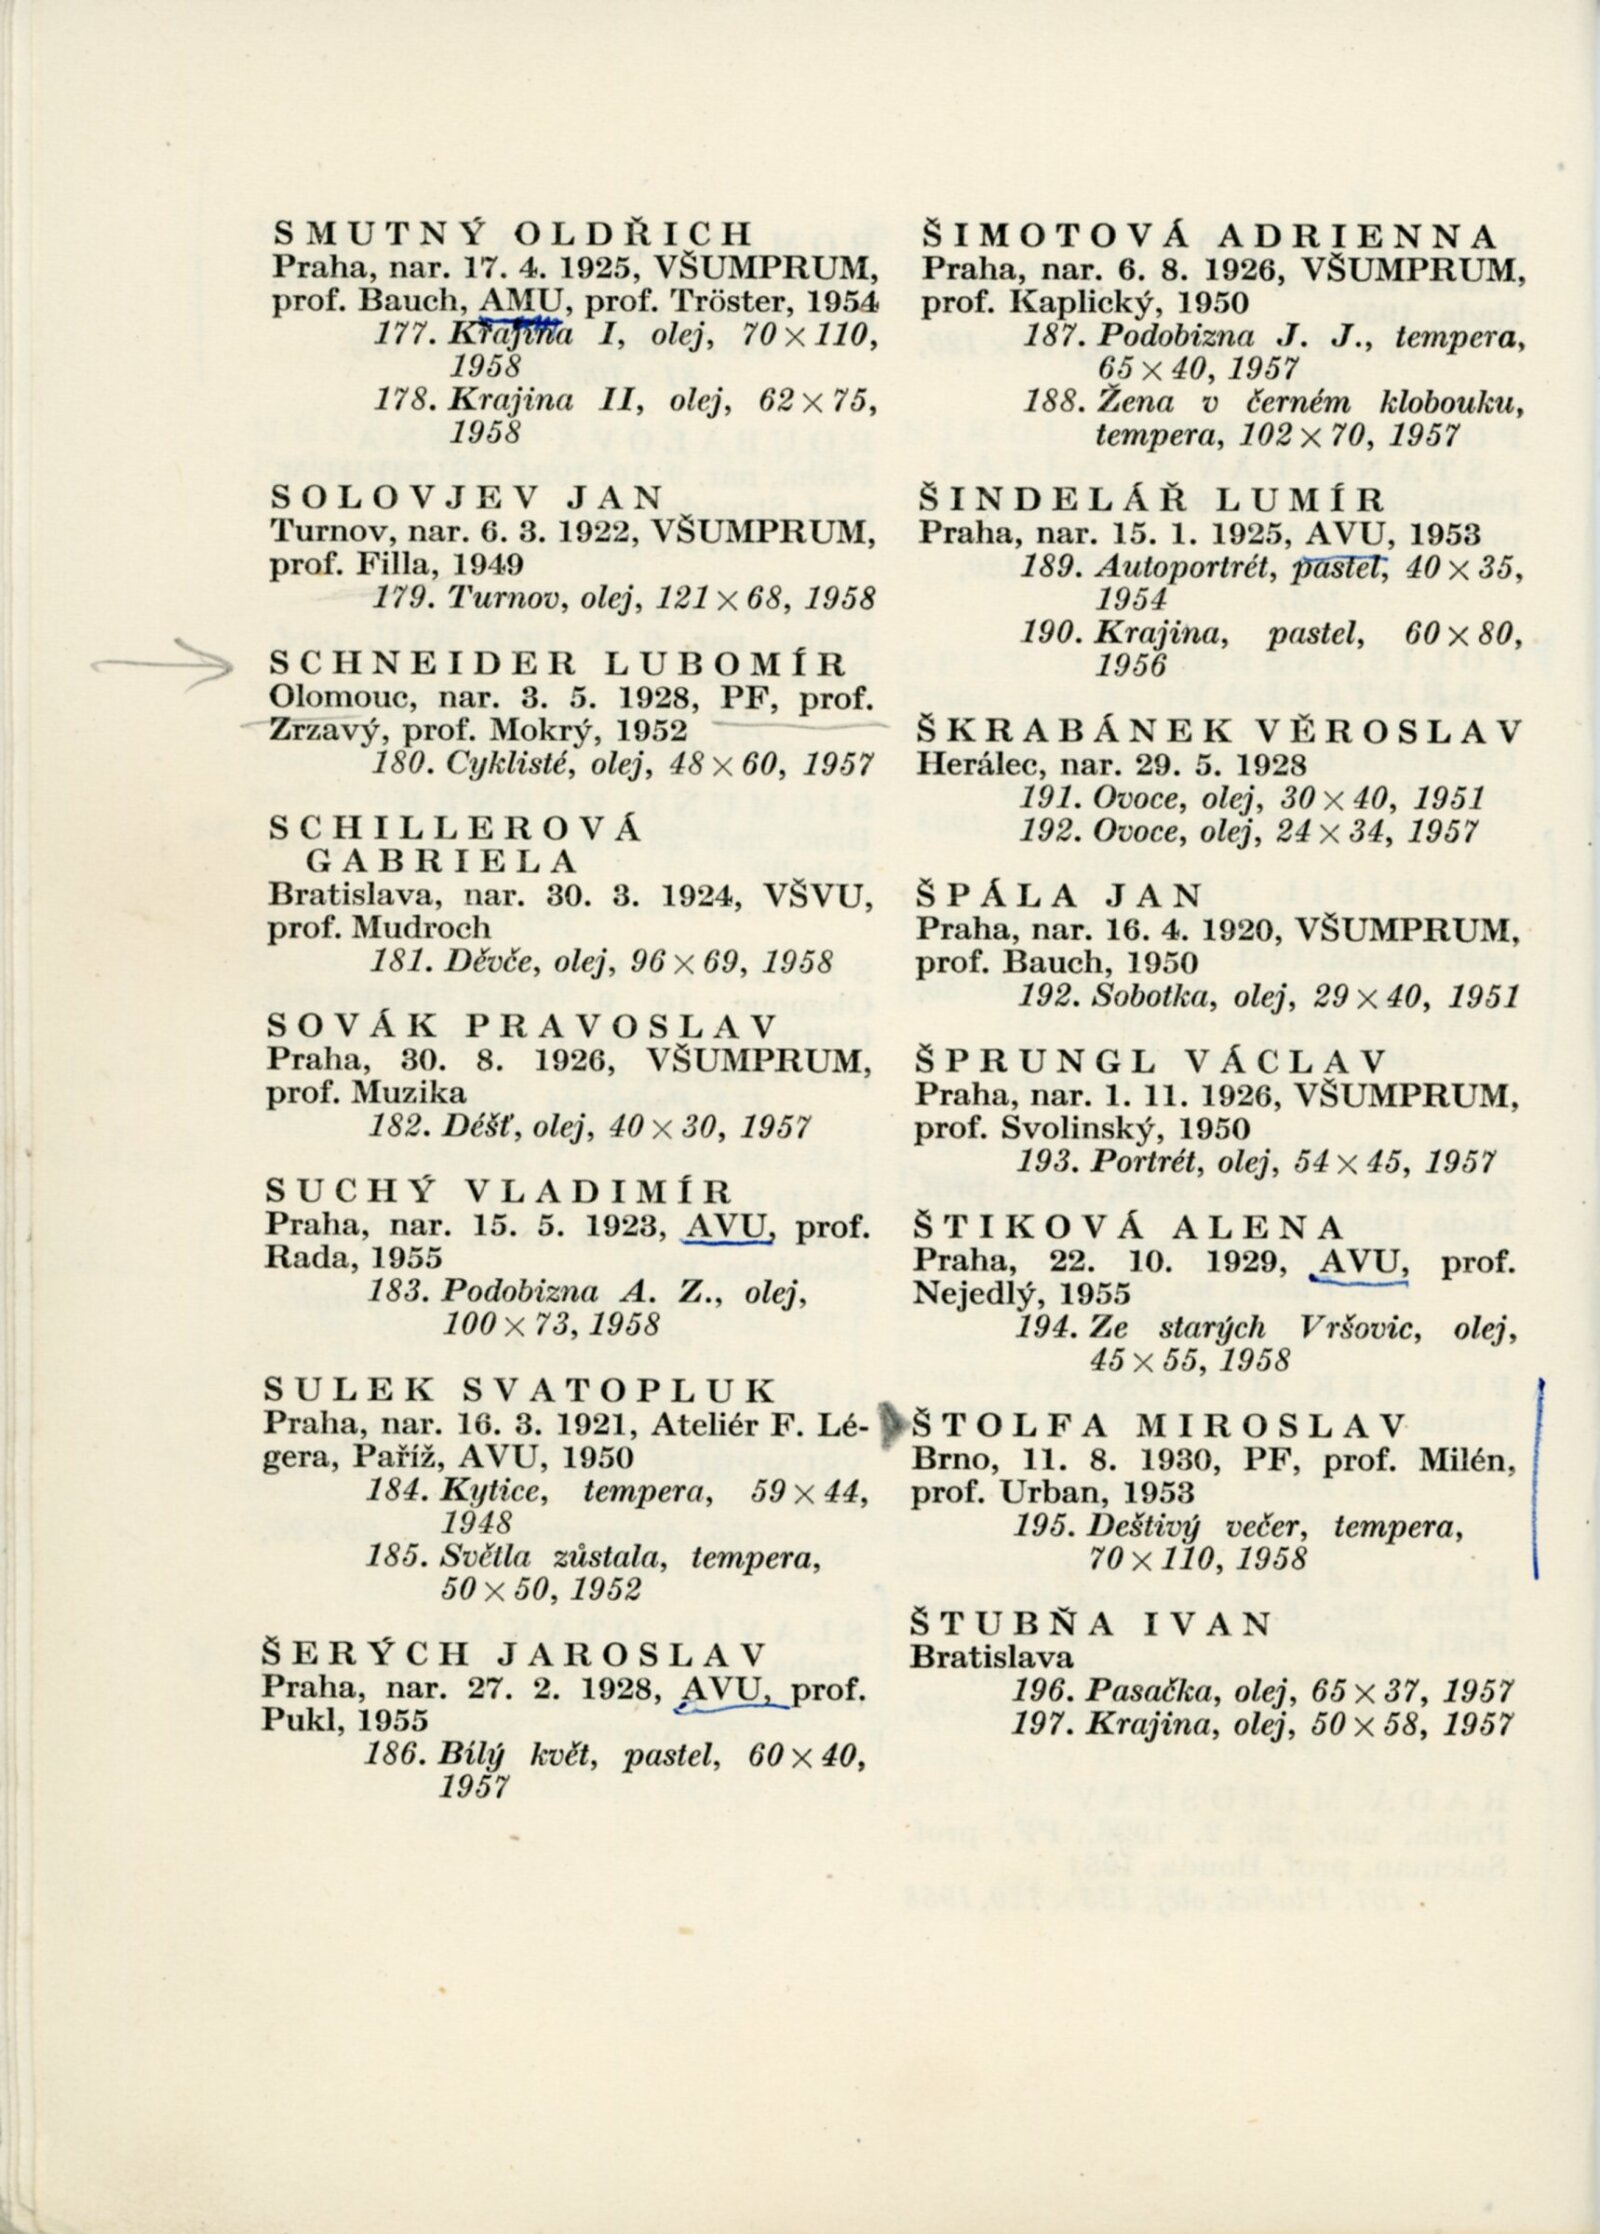 SMUTNÝ OLDŘICH
Praha, nar. 17. 4. 1925, VŠUMPRUM,
prof. Bauch, AMU, prof. Tröster, 1954
177. Krajina I, olej, 70 × 110,
1958
178. Krajina II, olej, 62 × 75,
1958
SOLOVJEV JAN
Turnov, nar. 6. 3. 1922, VŠUMPRUM,
prof. Filla, 1949
179. Turnov, olej, 121 × 68, 1958
SCHNEIDER LUBOMÍR
Olomouc, nar. 3. 5. 1928, PF, prof.
Zrzavý, prof. Mokrý, 1952
180. Cyklisté, olej, 48 × 60, 1957
SCHILLEROVÁ
GABRIELA
Bratislava, nar. 30. 3. 1924, VŠVU,
prof. Mudroch
181. Děvče, olej, 96 × 69, 1958
SOVÁK PRAVOSLAV
Praha, 30. 8. 1926, VŠUMPRUM,
prof. Muzika
182. Déšť, olej, 40 × 30, 1957
SUCHÝ VLADIMÍR
Praha, nar. 15. 5. 1923, AVU, prof.
Rada, 1955
183. Podobizna A. Z., olej,
100 × 73, 1958
SULEK SVATOPLUK
Praha, nar. 16. 3. 1921, Ateliér F. Lé-
gera, Paříž, AVU, 1950
184. Kytice, tempera, 59 × 44,
1948
185. Světla zůstala, tempera,
50 × 50, 1952
ŠERÝCH JAROSLAV
Praha, nar. 27. 2. 1928, AVU, prof.
Pukl, 1955
186. Bílý květ, pastel, 60 × 40,
1957
ŠIMOTOVÁ ADRIENNA
Praha, nar. 6. 8. 1926, VŠUMPRUM,
prof. Kaplický, 1950
187. Podobizna J. J., tempera,
65 × 40, 1957
188. Žena v černém klobouku,
tempera, 102 × 70, 1957
ŠINDELÁŘ LUMÍR
Praha, nar. 15. 1. 1925, AVU, 1953
189. Autoportrét, pastel, 40 × 35,
1954
190. Krajina, pastel, 60 × 80,
1956
ŠKRABÁNEK VĚROSLAV
Herálec, nar. 29. 5. 1928
191. Ovoce, olej, 30 × 40, 1951
192. Ovoce, olej, 24 × 34, 1957
ŠPÁLA JAN
Praha, nar. 16. 4. 1920, VŠUMPRUM,
prof. Bauch, 1950
192. Sobotka, olej, 29 × 40, 1951
ŠPRUNGL VÁCLAV
Praha, nar. 1. 11. 1926, VŠUMPRUM,
prof. Svolinský, 1950
193. Portrét, olej, 54 × 45, 1957
ŠTIKOVÁ ALENA
Praha, 22. 10. 1929, AVU, prof.
Nejedlý, 1955
194. Ze starých Vršovic, olej,
45 × 55, 1958
ŠTOLFA MIROSLAV
Brno, 11. 8. 1930, PF, prof. Milén,
prof. Urban, 1953
195. Deštivý večer, tempera,
70 × 110, 1958
ŠTUBŇA IVAN
Bratislava
196. Pasačka, olej, 65 × 37, 1957
197. Krajina, olej, 50 × 58, 1957